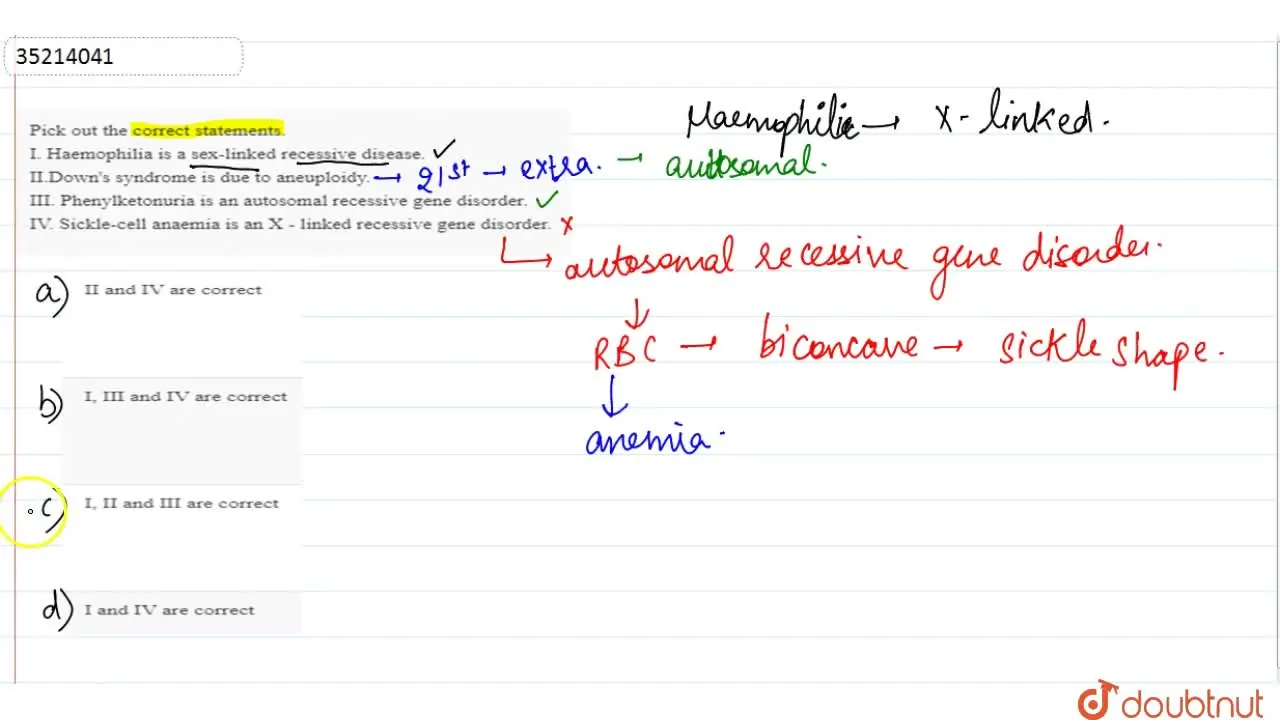 35214041
Pick out the correct statements.
I. Haemophilia is a sex-linked recessive disease. ✓
II.Down's syndrome is due to aneuploidy. → 21st → extra. → autosomal.
III. Phenylketonuria is an autosomal recessive gene disorder. ✓
IV. Sickle-cell anaemia is an X - linked recessive gene disorder. x
Haemophilic → X-linked.
autosomal recessive gene disorder.
RBC → biconcave → sickle shape.
anemia.
a) II and IV are correct
b) I, III and IV are correct
c) I, II and III are correct
d) I and IV are correct
doubtnut